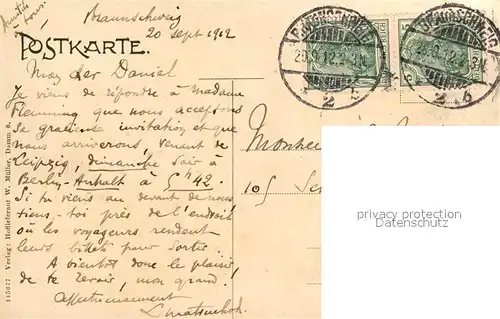 Amitiés
à tous.
Braunschweig
20 sept 1912
POSTKARTE.
BRAUNSCHWEIG
20.9.12.2-3N.
2 b
BRAUNSCHWEIG
20.9.12.2-3N.
2 b
Mon cher Daniel
Je viens de répondre à Madame
Flemming que nous acceptons
sa gracieuse invitation et que
nous arriverons, venant de
Leipzig, dimanche soir à
Berlin-Anhalt à 5h42.
Si tu viens au devant de nous
tiens-toi près de l'endroit
où les voyageurs rendent
leurs billets pour sortir.
A bientôt donc le plaisir,
de te revoir, mon grand!
Affectueusement
Monsieur
105
privacy protection
Datenschutz
115877 Verlag: Hoflieferant W. Müller, Damm 6.